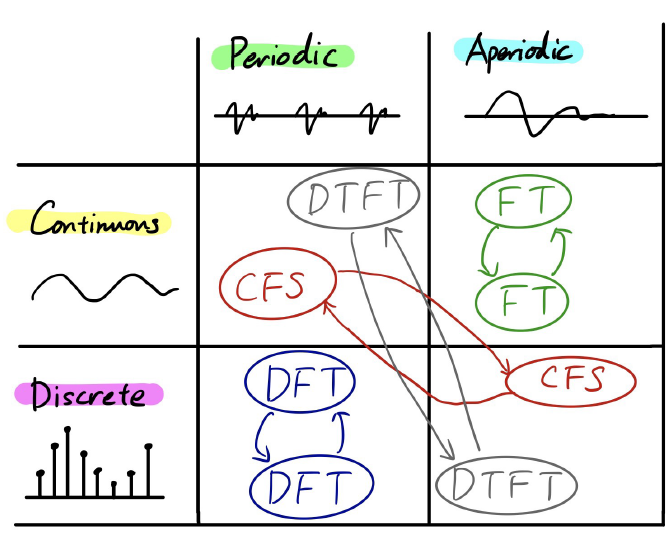 Periodic
Aperiodic
Continuous
DTFT
FT
CFS
FT
Discrete
DFT
CFS
DFT
DTFT